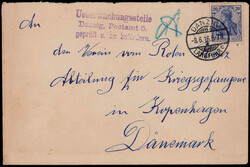 Ueberwachungsstelle
Danzig, Postamt 5.
geprüft u. zu befördern.
DANZIG
An
den Verein vom Roten
Abteilung für Kriegsgefangene
in Kopenhagen
Dänemark